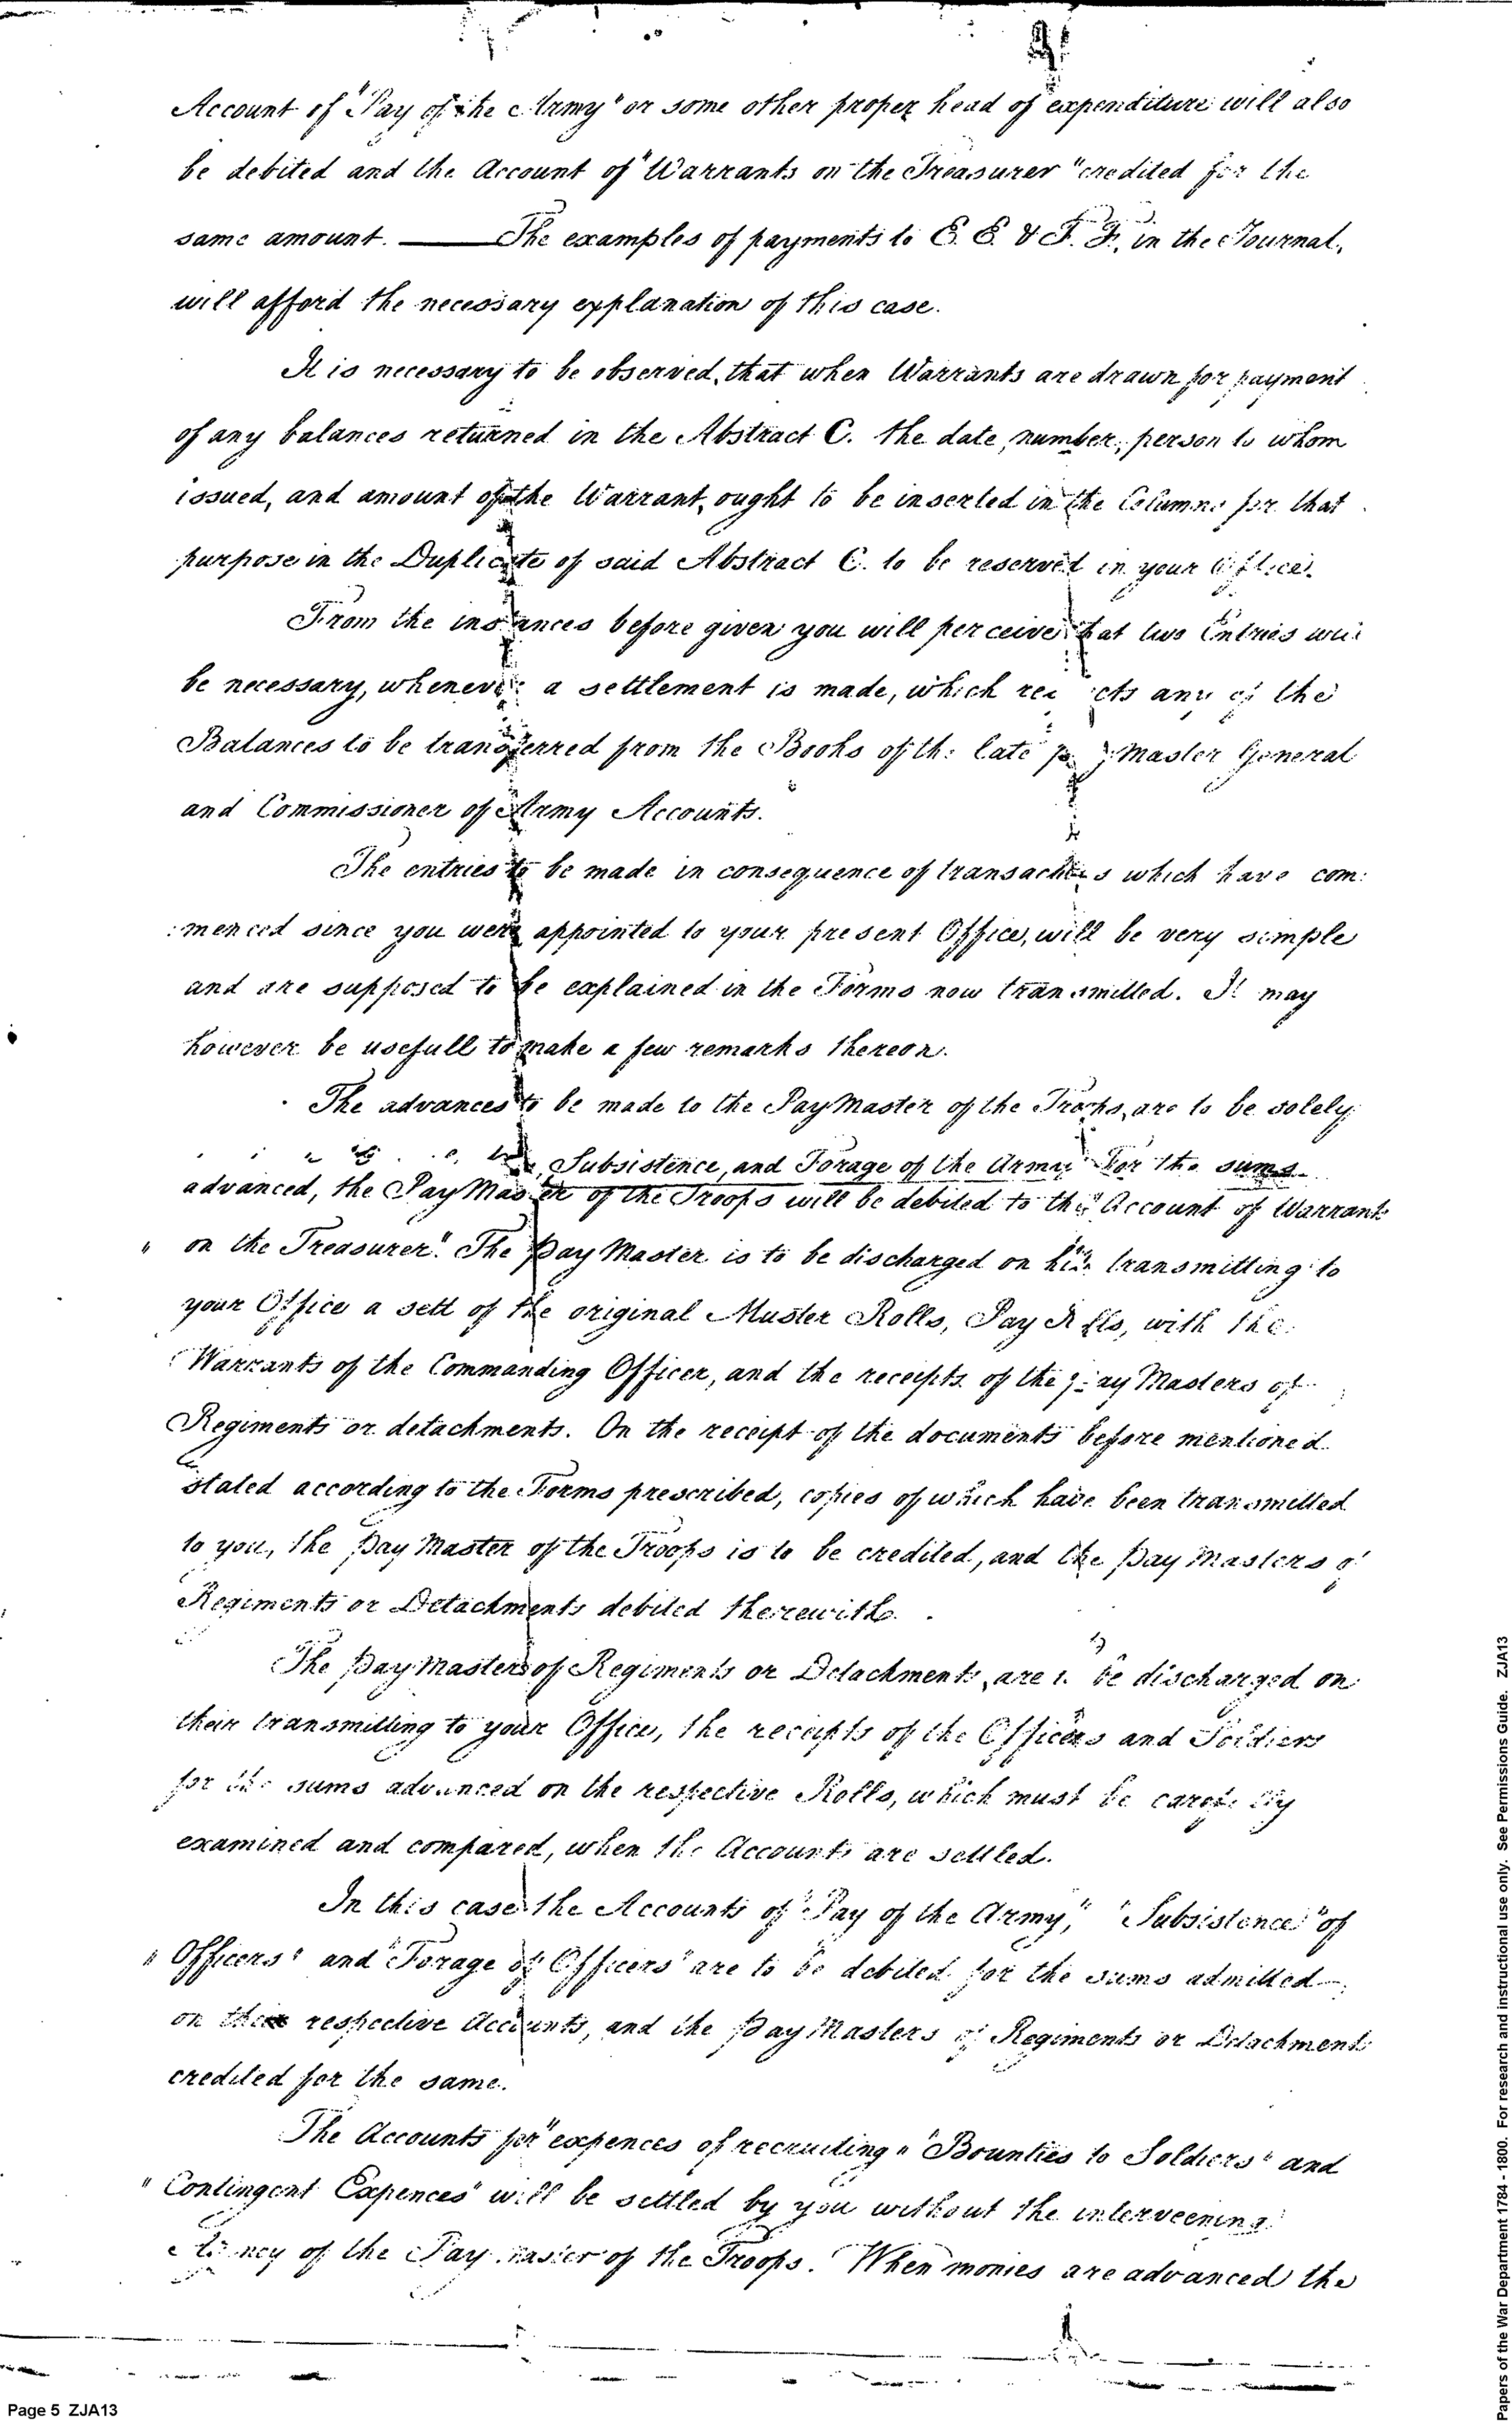 Account of "Pay of the Army" or some other proper head of expenditure will also
be debited and the Account of "Warrants on the Treasurer" credited for the
same amount. ——— The examples of payments to E. E. & F. F. in the Journal,
will afford the necessary explanation of this case.
It is necessary to be observed, that when Warrants are drawn for payment
of any balances returned in the Abstract C. the date, number, person to whom
issued, and amount of the Warrant, ought to be inserted in the Columns for that
purpose in the Duplicate of said Abstract C. to be reserved in your Office.
From the instances before given you will perceive that two Entries will
be necessary, whenever a settlement is made, which respects any of the
Balances to be transferred from the Books of the late pay Master General
and Commissioner of Army Accounts.
The entries to be made in consequence of transactions which have com:
:menced since you were appointed to your present Office, will be very simple
and are supposed to be explained in the Forms now transmitted. It may
however be usefull to make a few remarks thereon.
The advances to be made to the PayMaster of the Troops, are to be solely
Subsistence, and Forage of the Army For the sums
advanced, the PayMaster of the Troops will be debited to the "Account of Warrants
" on the Treasurer". The Pay Master is to be discharged on his transmitting to
your Office a sett of the original Muster Rolls, Pay Rolls, with the
Warrants of the Commanding Officer, and the receipts of the pay Masters of
Regiments or detachments. On the receipt of the documents before mentioned
stated according to the Forms prescribed, copies of which have been transmitted
to you, the Pay Master of the Troops is to be credited, and the Pay Masters of
Regiments or Detachments debited therewith.
The Pay Masters of Regiments or Detachments, are to be discharged on
their transmitting to your Office, the receipts of the Officers and Soldiers
for the sums advanced on the respective Rolls, which must be carefully
examined and compared, when the Accounts are settled.
In this case the Accounts of "Pay of the Army," "Subsistence" of
" Officers" and "Forage of Officers" are to be debited for the sums admitted
on their respective Accounts, and the Pay Masters of Regiments or Detachments
credited for the same.
The Accounts for "expences of recruiting" "Bounties to Soldiers" and
" Contingent Expences" will be settled by you without the interveening
Agency of the Pay master of the Troops. When monies are advanced the
Page 5 ZJA13
Papers of the War Department 1784 - 1800. For research and instructional use only. See Permissions Guide. ZJA13